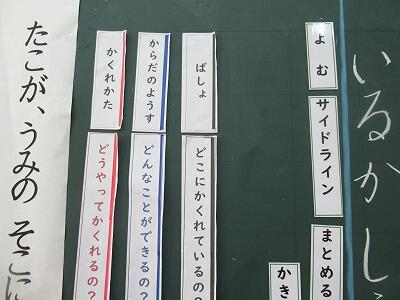 いるかし
よむ
サイドライン
まとめる
かき
ばしょ
どこにかくれているの?
からだのようす
どんなことができるの?
かくれかた
どうやってかくれるの?
たこが、うみの そこに